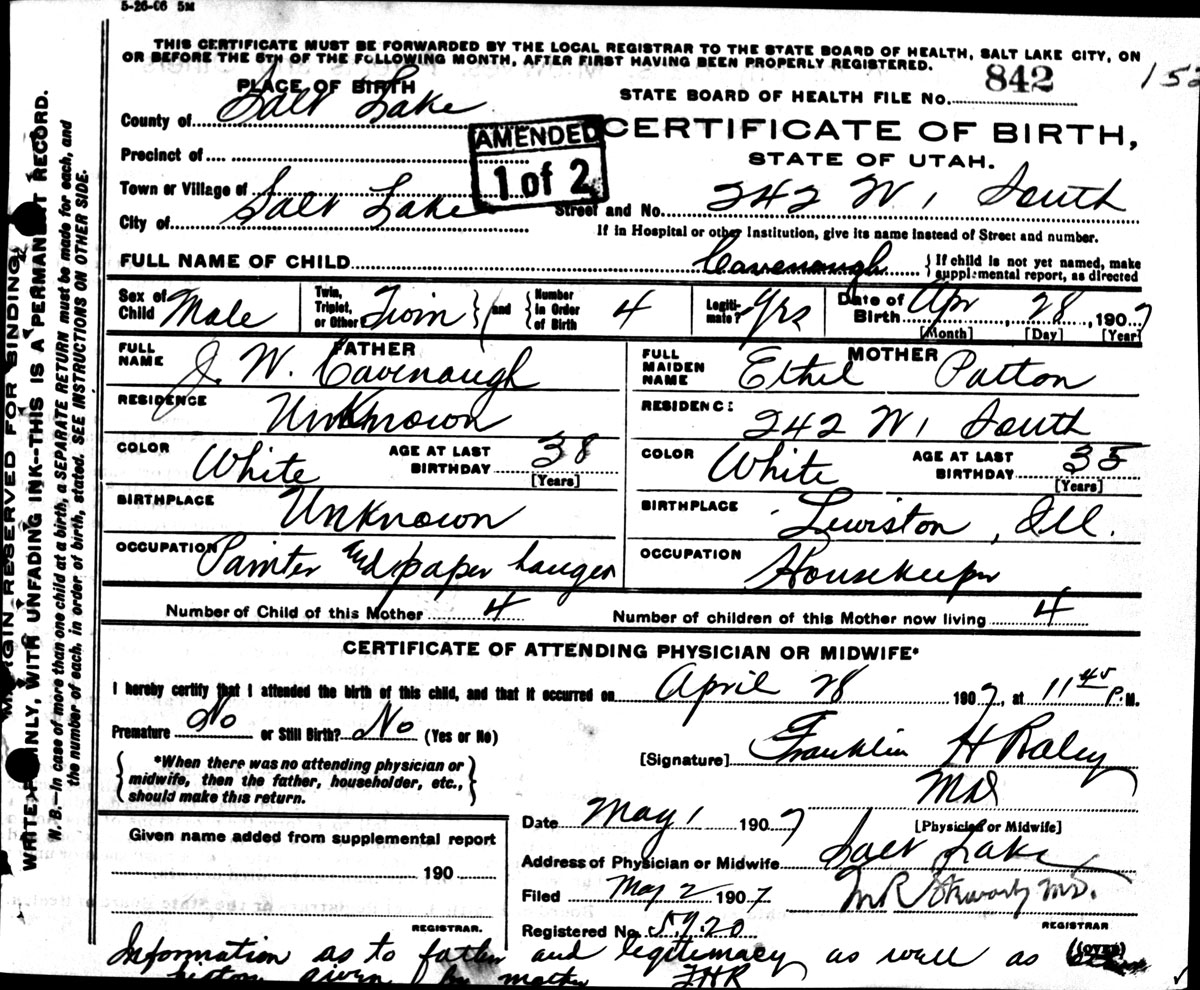 5-26-06 5M
THIS CERTIFICATE MUST BE FORWARDED BY THE LOCAL REGISTRAR TO THE STATE BOARD OF HEALTH, SALT LAKE CITY, ON
OR BEFORE THE 5TH OF THE FOLLOWING MONTH, AFTER FIRST HAVING BEEN PROPERLY REGISTERED.
PLACE OF BIRTH
STATE BOARD OF HEALTH FILE No. 842
152
County of Salt Lake
CERTIFICATE OF BIRTH,
STATE OF UTAH.
AMENDED
1 of 2
Precinct of
Town or Village of
City of Salt Lake
Street and No. 242 W 1 South
If in Hospital or other Institution, give its name instead of Street and number.
FULL NAME OF CHILD Cavenaugh { If child is not yet named, make supplemental report, as directed
Sex of Child Male
Twin, Triplet, or Other Twin } and { Number in Order of Birth 4
Legitimate? Yes
Date of Birth Apr 28, 1907
[Month] [Day] [Year]
FATHER
FULL NAME J. W. Cavenaugh
RESIDENCE Unknown
COLOR White AGE AT LAST BIRTHDAY 38 [Years]
BIRTHPLACE Unknown
OCCUPATION Painter and paper hanger
MOTHER
FULL MAIDEN NAME Ethel Patton
RESIDENCE 242 W 1 South
COLOR White AGE AT LAST BIRTHDAY 35 [Years]
BIRTHPLACE Lewiston, Ill.
OCCUPATION Housekeeper
Number of Child of this Mother 4 Number of children of this Mother now living 4
CERTIFICATE OF ATTENDING PHYSICIAN OR MIDWIFE*
I hereby certify that I attended the birth of this child, and that it occurred on April 28 1907, at 11 45 P.M.
Premature No or Still Birth? No (Yes or No)
*When there was no attending physician or
midwife, then the father, householder, etc.,
should make this return.
[Signature] Franklin H Raley
MD
[Physician or Midwife]
Date May 1 1907
Given name added from supplemental report
190
REGISTRAR.
Address of Physician or Midwife Salt Lake
Filed May 2 1907
M R Stewart M.D.
REGISTRAR
Registered No. 5720
(OVER)
Information as to father and legitimacy as well as
history given by mother FHR
MARGIN RESERVED FOR BINDING
WRITE PLAINLY, WITH UNFADING INK--THIS IS A PERMANENT RECORD.
N. B.--In case of more than one child at a birth, a SEPARATE RETURN must be made for each, and
the number of each, in order of birth, stated. SEE INSTRUCTIONS ON OTHER SIDE.